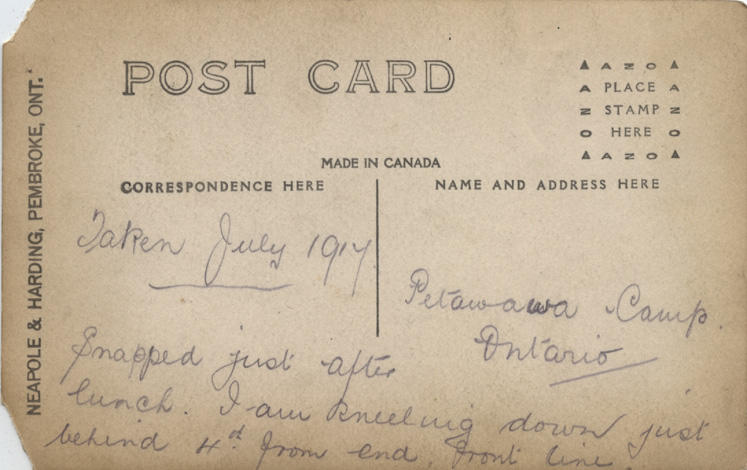 POST CARD
▲ A N O ▲
A PLACE A
N STAMP N
O HERE O
▲ A N O ▲
MADE IN CANADA
CORRESPONDENCE HERE
NAME AND ADDRESS HERE
NEAPOLE & HARDING, PEMBROKE, ONT.
Taken July 1917
Petawawa Camp.
Ontario
Snapped just after
lunch. I am kneeling down just
behind 4th from end, front line